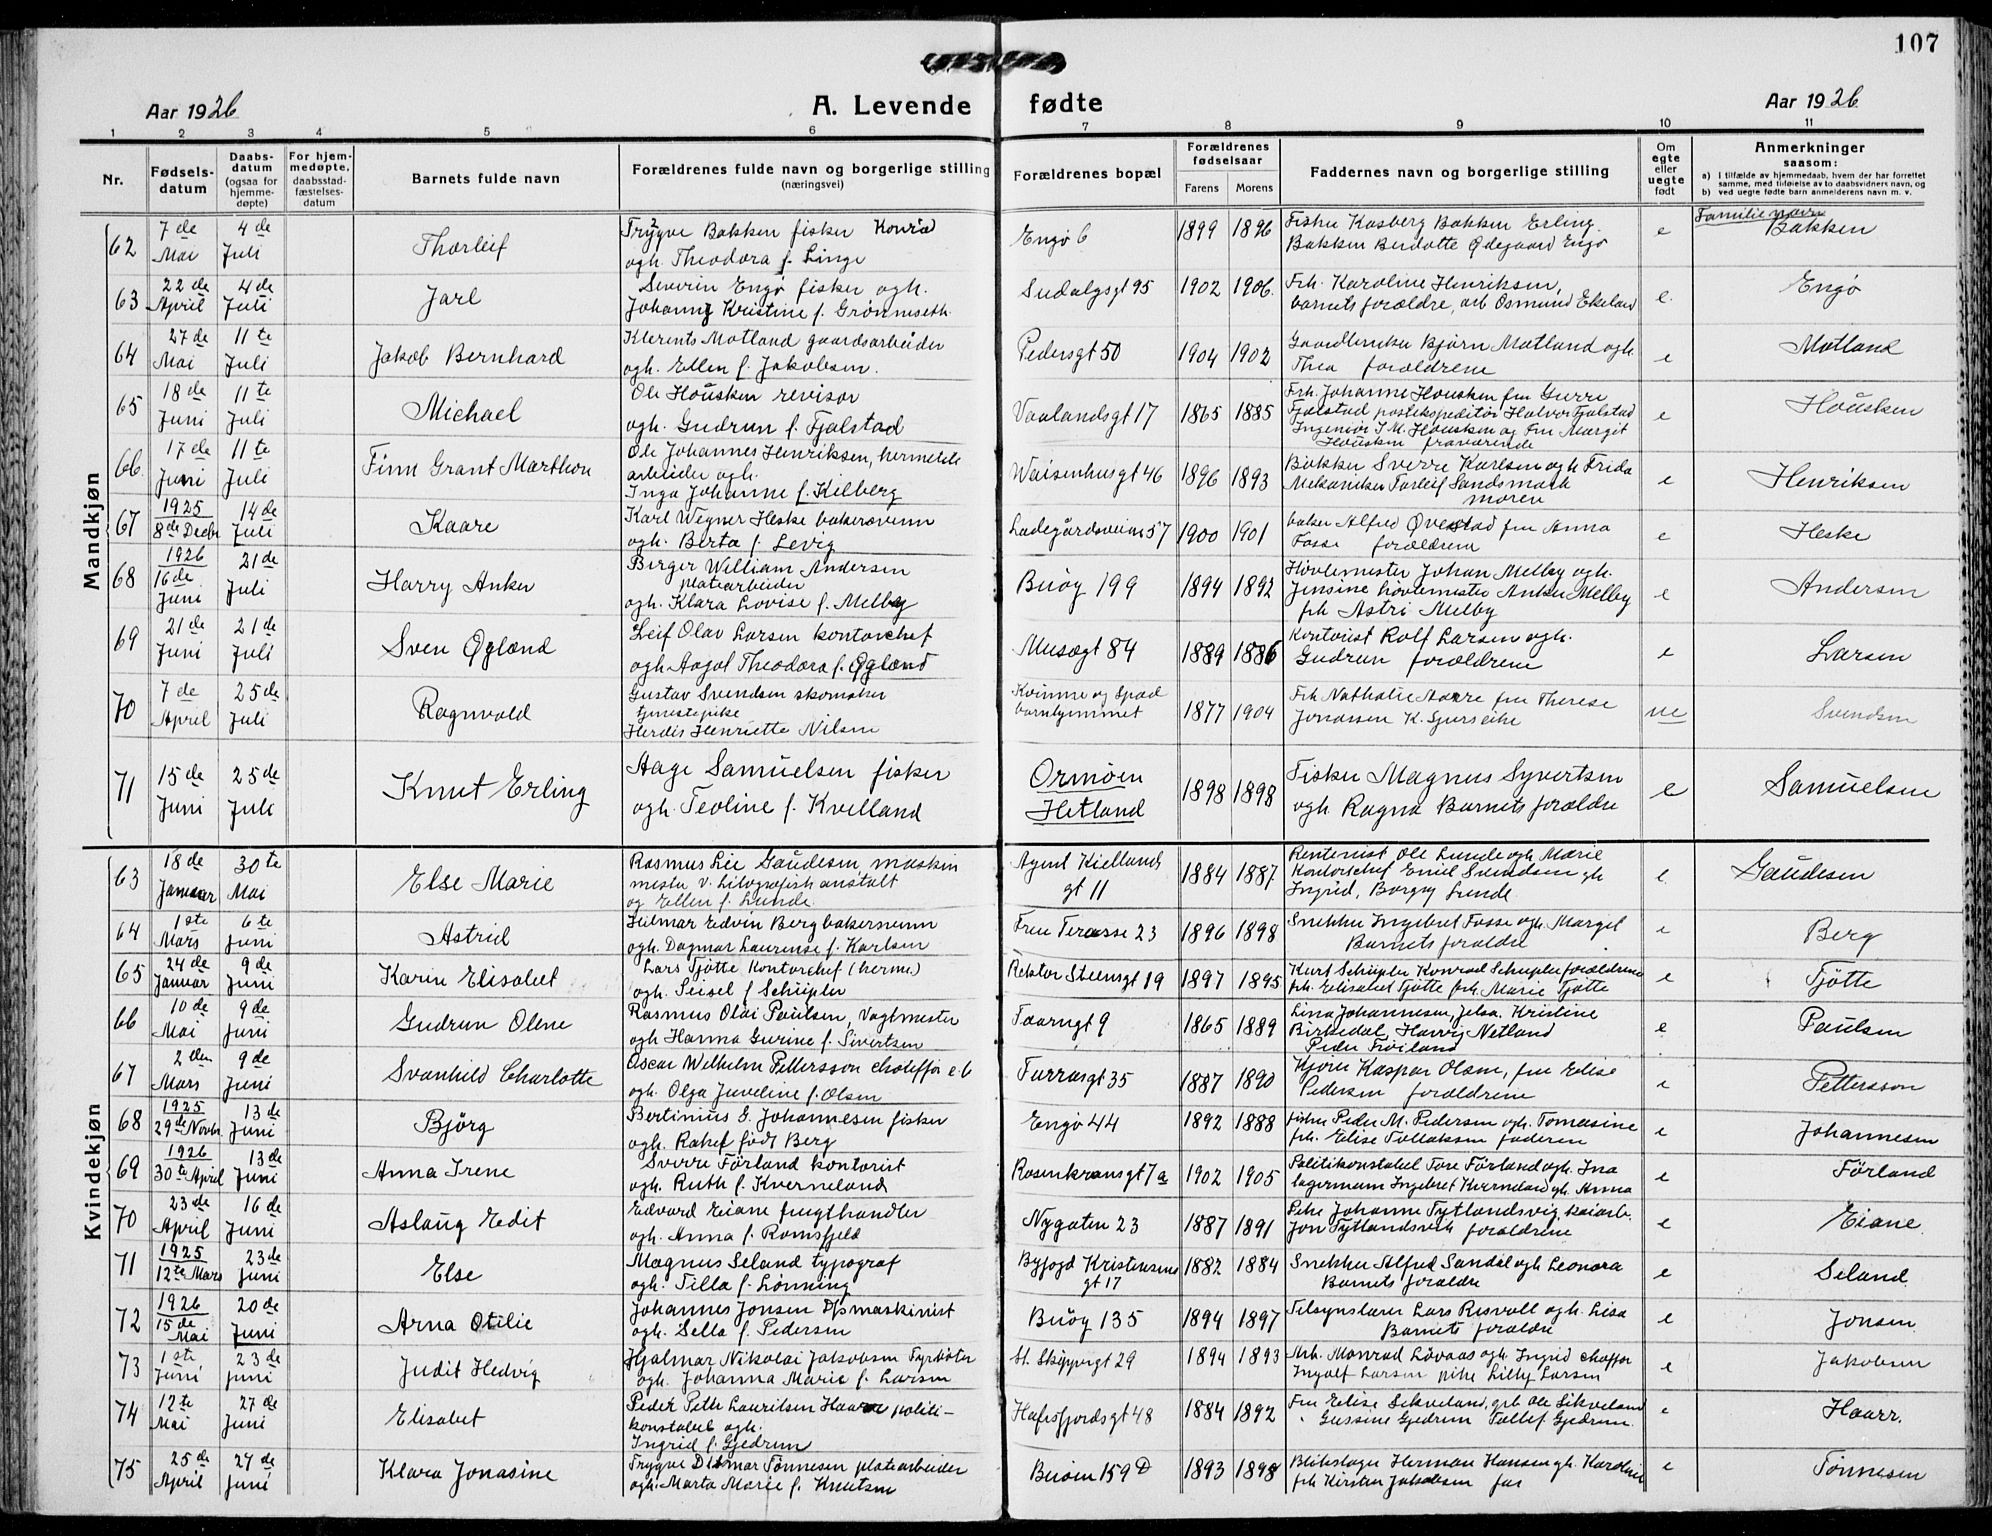 107
Aar 1926
A. Levende fødte
Aar 1926
1 2 3 4 5 6 7 8 9 10 11
Nr.
Fødsels-
datum
Daabs-
datum
(ogsaa for
hjemme-
døpte)
For hjem-
medøpte,
daabsstad-
fæstelses-
datum
Barnets fulde navn
Forældrenes fulde navn og borgerlige stilling
(næringsvei)
Forældrenes bopæl
Forældrenes
fødselsaar
Farens Morens
Faddernes navn og borgerlige stilling
Om
egte
eller
uegte
født
Anmerkninger
saasom:
a) I tilfælde av hjemmedaab, hvem der har forrettet
samme, med tilføielse av to daabsvidners navn, og
b) ved uegte fødte barn anmelderens navn m. v.
Mandkjøn
62 7de Mai 4de Juli Thorleif
Trygve Bakken fisker Konrad
ogh. Theodora f. Linge
Engø 6 1899 1896
Fisker Kasberg Bakken Erling
Bakken Ødegaard Engø
e Familienavn Bakken
63 22de April 4de Juli Jarl
Severin Engø fisker ogh.
Johanne Kristine f. Grønneseth
95 1902 1906
Frk. Karoline Henriksen,
barnets forældre, arb Osmund Ekeland
e. Engø
64 27de Mai 11te Juli Jakob Bernhard
Klerents Motland gaardsarbeider
ogh. Ellen f. Jakobsen.
Pedersgt 50 1904 1902
Bjørn Motland ogh.
Thea forældrene
e Motland
65 18de Juni 11te Juli Michael
Ole Housken revisor
ogh. Gudrun f. Fjalstad
Vaalandsgt 17 1865 1885
Frk. Johanne Housken fru Gurre
Fjalstad postekspeditør Halvor Fjalstad
Ingeniør J M. Housken og Fru Margit
Housken fraværende
e Housken
66. 17de Juni 11te Juli Finn Grant Marthon
Ole Johannes Henriksen, hermetik
arbeider ogh.
Inga Johanne f. Kilberg
Waisenhusgt 46 1896 1893
Sverre Karlsen ogh Frida
Mekaniker Torleif Sandsmark
moren
e Henriksen
67 1925 8de Decbr 14de Juli Kaare
Karl Wegner Heske bakersvenn
ogh. Berta f. Levig
Ladegårdsveien 57 1900 1901
baker Alfred Øvestad fru Anna
Fosse forældrene
e Heske
68 1926 16de Juni 21de Juli Harry Anker
Birger William Andersen
platearbeider
ogh. Klara Lovise f. Melby
Buøy 199 1894 1892
Høvlemester Johan Melby ogh.
Jensine høvlemester Anker Melby
frk Astri Melby
e Andersen
69 21de Juni 21de Juli Sven Øgland
Leif Olav Larsen kontorchef
ogh Aagot Theodora f. Øgland
Musægt 84 1889 1886
Kontorist Rolf Larsen ogh.
Gudrun forældrene
e Larsen
70 7de April 25de Juli Ragnvald
Gustav Svendsen skomaker
tjenestepike
Herdis Henriette Nilsen
Kvinne og Spæd
barnhjemmet 1877 1904
Frk Nathalie Aarre fru Therese
Jonassen K.
ue Svendsen
71 15de Juni 25de Juli Knut Erling
Aage Samuelsen fisker
ogh. Teoline f. Kvelland
Ormøen
Hetland 1898 1898
Fisker Magnus Syvertsen
ogh. Ragna Barnets forældre
e Samuelsen
Kvindekjøn
63 18de Januar 30te Mai Else Marie
Rasmus Lie Gaudesen maskin
mester v. Litografisk anstalt
og Ellen f. Lunde
Agent Kiellands
gt 11 1884 1887
Rentenist Ole Lunde ogh Marie
Kontorchef Emil Svendsen gh
Ingrid, Borgny Lunde
e. Gaudesen
64 1ste Mars 6te Juni Astrid
Hilmar Edvin Berg bakersvenn
ogh. Dagmar Laurense f. Karlsen
Frue Terasse 23 1896 1898
Snekker Ingebret Fosse ogh. Margit
Barnets forældre
e Berg
65 24de Januar 9de Juni Karin Elisabet
Lars Tjøtte Kontorchef (herme.)
ogh. Seisel f Schüpler
Rektor Steensgt 19 1897 1895
Kurt Schüpler Konrad Schüpler forældrene
frk. Elisabet Tjøtte frk. Marie Tjøtte
e Tjøtte
66 10de Mai 9de Juni Gudrun Olene
Rasmus Olai Paulsen, Vagtmester
ogh Hanna Gurine f. Sivertsen
Taarngt 9 1865 1889
Lina Johannesen, Jelsa. Kristine
Birkedal, Harvig Netland
Peder Frøiland
e Paulsen
67 2den Mars 9de Juni Svanhild Charlotte
Oscar Wilhelm Pettersson chauffør e.b
ogh. Olga Juveline f. Olsen
Furrasgt 35 1887 1890
Kjøre Kaspar Olsen, fru Elise
Pedersen forældrene
e Pettersson
68 1925 29de Novbr. 13de Juni Bjørg
Bertinius E. Johannesen fisker
ogh. Rakel født Berg
Engø 44 1892 1888
fisker Peder M. Pedersen ogh. Tomasine
frk. Elise Tollaksen faderen
e Johannesen
69 1926 30te April 13de Juni Anna Irene
Sverre Førland kontorist
ogh. Ruth f. Kverneland
Rosenkransgt 7a 1902 1905
Politikonstabel Tore Førland ogh. Ina
lagermann Ingebret Kverneland gh. Anna
e Førland
70 23de April 16de Juni Aslaug Edit
Edvard Eiane frugthandler
ogh. Anna f. Ramsfjeld
Nygaten 23 1887 1891
Pike Johanne Tytlandsvig, kaiarb.
Jon Tytlandsvik forældrene
e Eiane
71 1925 12te Mars 23de Juni Else
Magnus Seland typograf
ogh. Tilla f. Lønning
Byfogd Kristensens
gt 17 1882 1884
Snekker Alfred Sandal ogh Leonora
Barnets forældre
e Seland
72 1926 15de Mai 20de Juni Arna Otilie
Johannes Jonsen D/smaskinist
ogh. Sella f. Pedersen
Buøy 135 1894 1897
Tilsynslærer Lars Risvoll ogh. Lisa
Barnets forældre
e Jonsen
73 1ste Juni 23de Juni Judit Hedvig
Hjalmar Nikolai Jakobsen Fyrbøter
ogh. Johanna Marie f. Larsen
St. Skippergt 29 1894 1893
Arb. Monrad Lovaas ogh. Ingrid chaffør
Ingolf Larsen pike Lilly Larsen
e Jakobsen
74 12te Mai 27de Juni Elisabet
Peder Peth Lauritsen Haarr politi-
konstabel ogh.
Ingrid f. Gjedrem
Hafrsfjordsgt 48 1884 1892
Fru Elise Sikveland, grb. Ole Sikveland
Gussine Gjedrem Tollef Gjedrem.
e Haarr.
75 25de April 27de Juni Klara Jonasine
Trygve Ditmar Tønnesen platearbeider
ogh. Marta Marie f. Knutsen
Buøen 159 D 1893 1898
Blikslager Herman Hansen gh. Karoline
frk Kirsten Jakobsen far
e Tønnesen